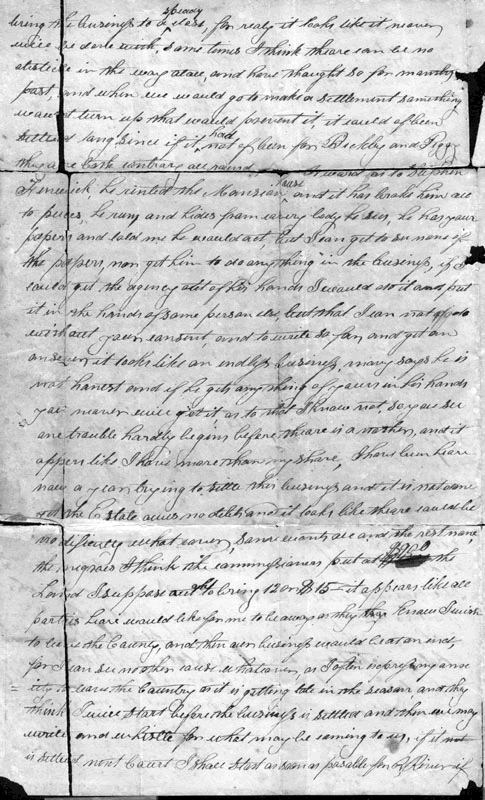 bring the business to a close, for realy it looks like it never
speedy
will be done with, some times I think theare can be no
obsticle in the way atall, and have thought so for months
past, and when we would go to make a settlement something
would turn up that would prevent it, it would of been
settled long since if it had not of been for Bickley and Pigg
they are both contrary all round as to Stephen
Fenwick, he rented the Mansion house and it has broke him all
to pieces, he runs and hides from every body he sees, he has your
papers and told me he would act, but I can get to see none of
the papers, nor get him to do any thing in the business, if I
could get the agency out of his hands I would do it and put
it in the hands of some person else, but that I can not do
without your consent and to write so far and get an
answer it looks like an endless business, many says he is
not honest and if he gets any thing of yours in his hands
you never will get it as to that I know not, so you see
one trouble hardly begins before theare is another, and it
appers like I have more than my share, I have been heare
now a year trying to settle this business and it is not done
yet the Estate owes no debts and it looks like theare could be
no dificulty whatever, some wants all and the rest none,
the negroes I think the commissioners put at $9000 the
Land I suppose ought to bring 12 or $15 it appears like all
parties heare would like for me to be away as they know I wish
to leave the County, and then our business would be at an end,
for I can see no other cause whatever, as Foster is opressing me
to leave the Country as it is getting late in the season and they
think I will start before the business is settled and then we may
write and whistle for what may be coming to us, if it not
is settled next Court I shall start as soon as posable for R River if